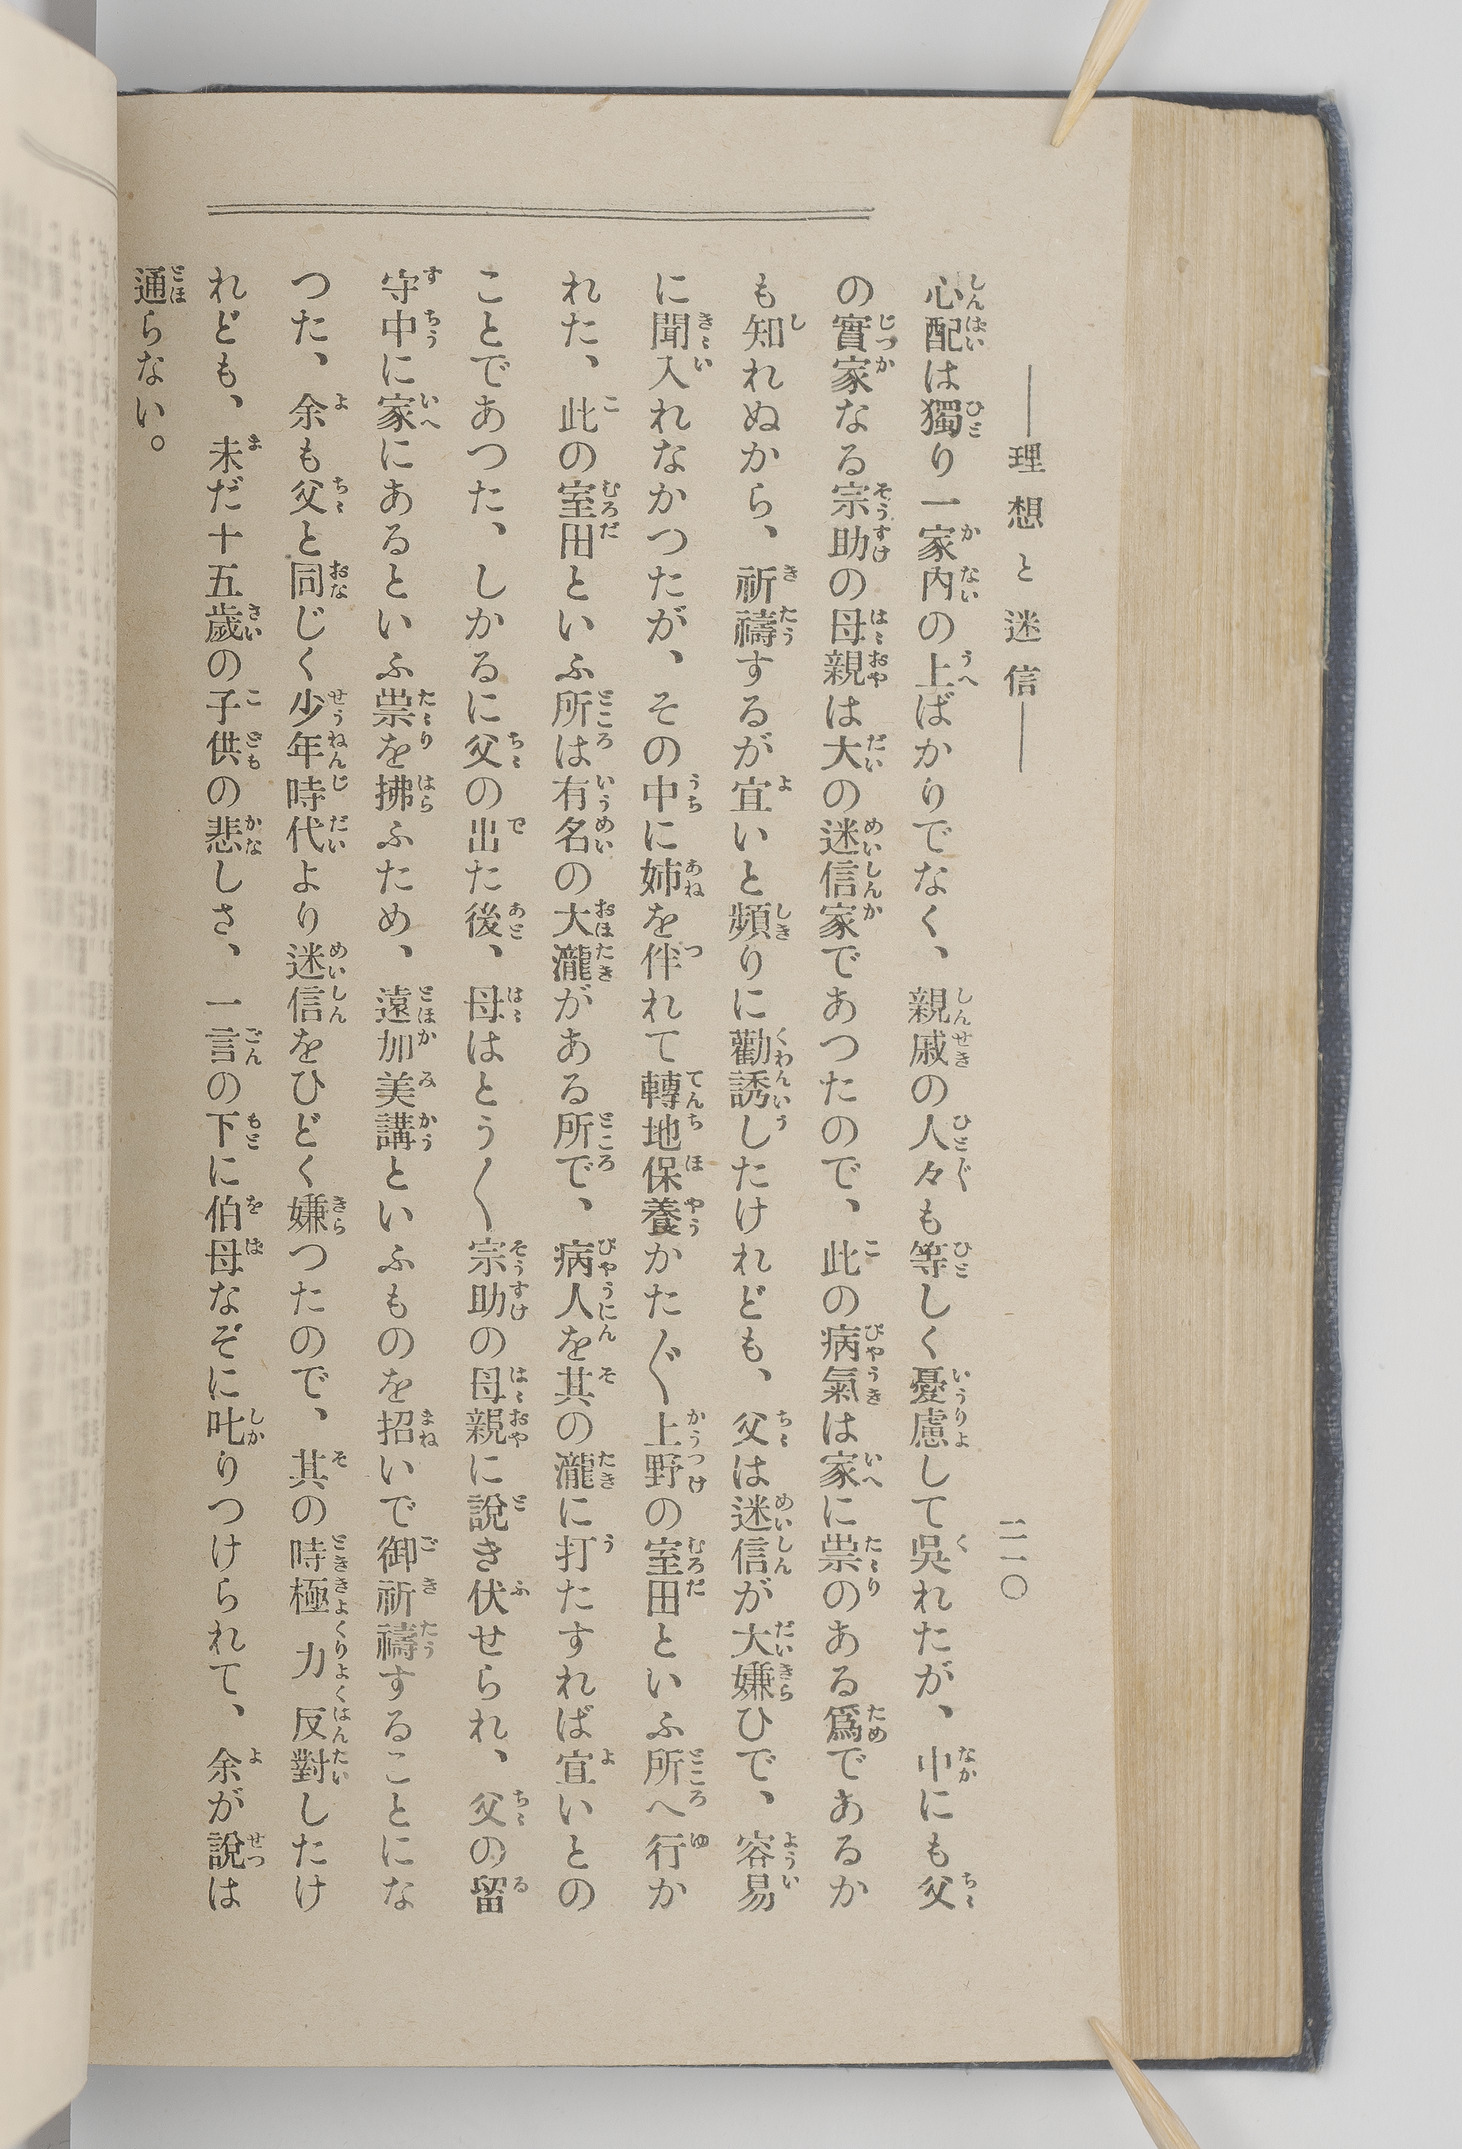 ――理想と迷信――
二一〇
心配は獨り一家内の上ばかりでなく、親戚の人々も等しく憂慮して吳れたが、中にも父
の實家なる宗助の母親は大の迷信家であつたので、此の病氣は家に祟のある爲であるか
も知れぬから、祈禱するが宜いと頻りに勸誘したけれども、父は迷信が大嫌ひで、容易
に聞入れなかつたが、その中に姉を伴れて轉地保養かた〴〵上野の室田といふ所へ行か
れた、此の室田といふ所は有名の大瀧がある所で、病人を其の瀧に打たすれば宜いとの
ことであつた、しかるに父の出た後、母はとう〳〵宗助の母親に說き伏せられ、父の留
守中に家にあるといふ祟を拂ふため、遠加美講といふものを招いで御祈禱することにな
つた、余も父と同じく少年時代より迷信をひどく嫌つたので、其の時極力反對したけ
れども、未だ十五歲の子供の悲しさ、一言の下に伯母なぞに叱りつけられて、余が說は
通らない。